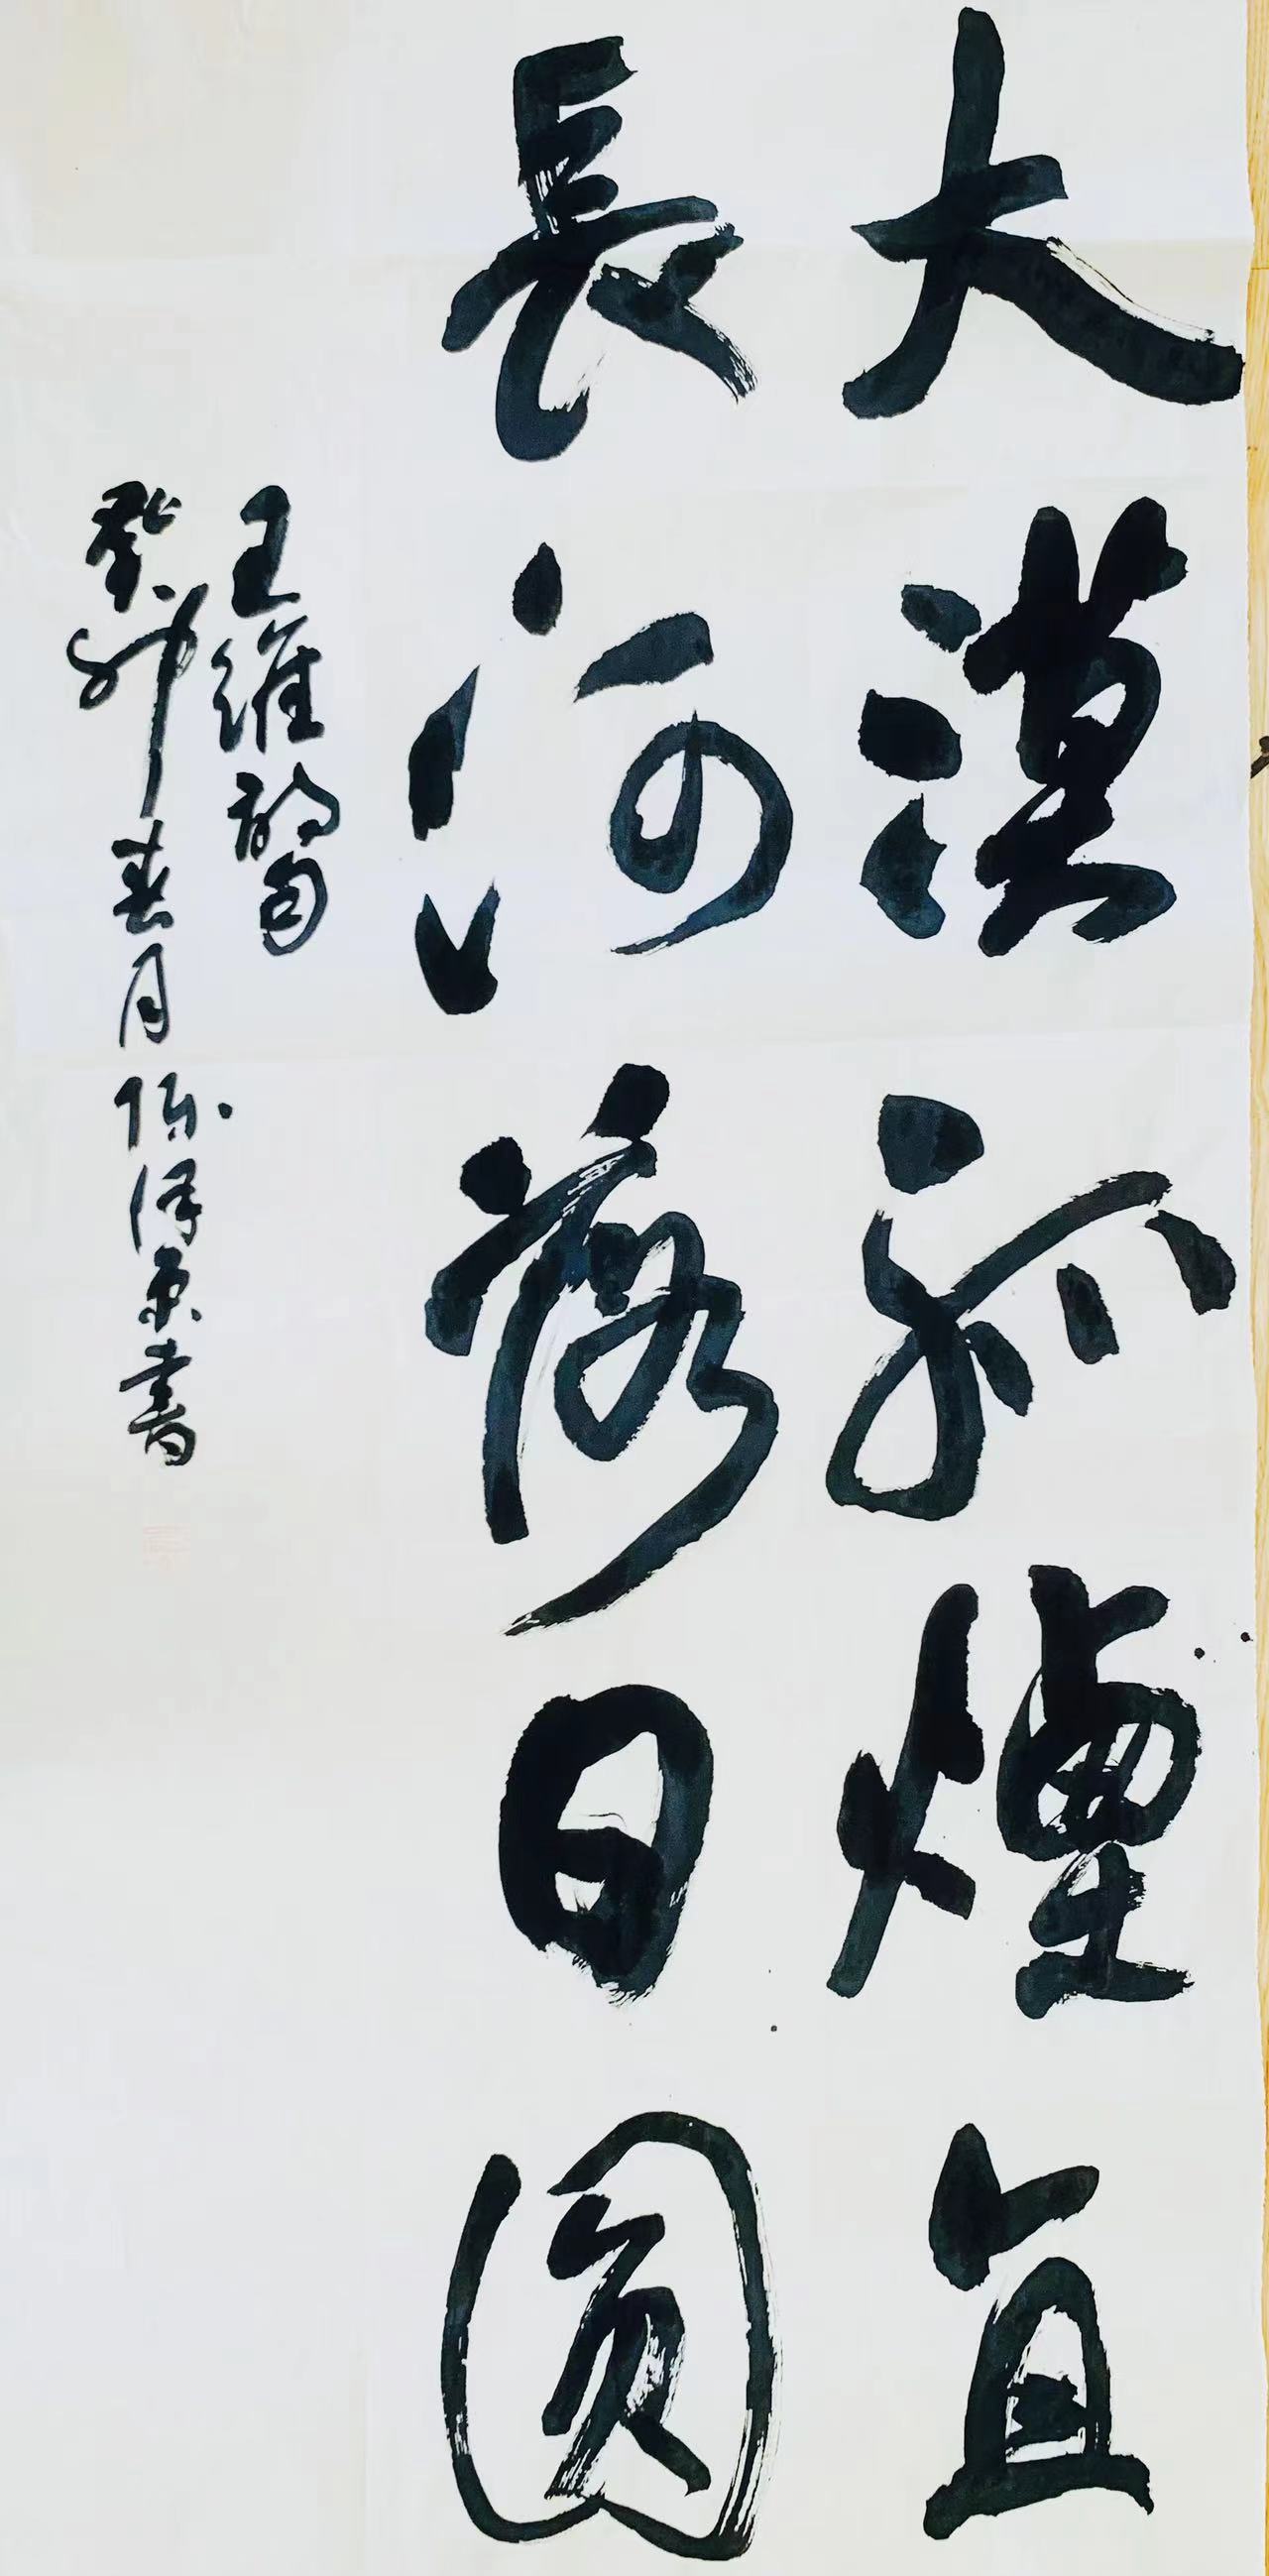 大漠孤煙直
長河落日圓
王維詩句
癸卯春月陈泽泉書